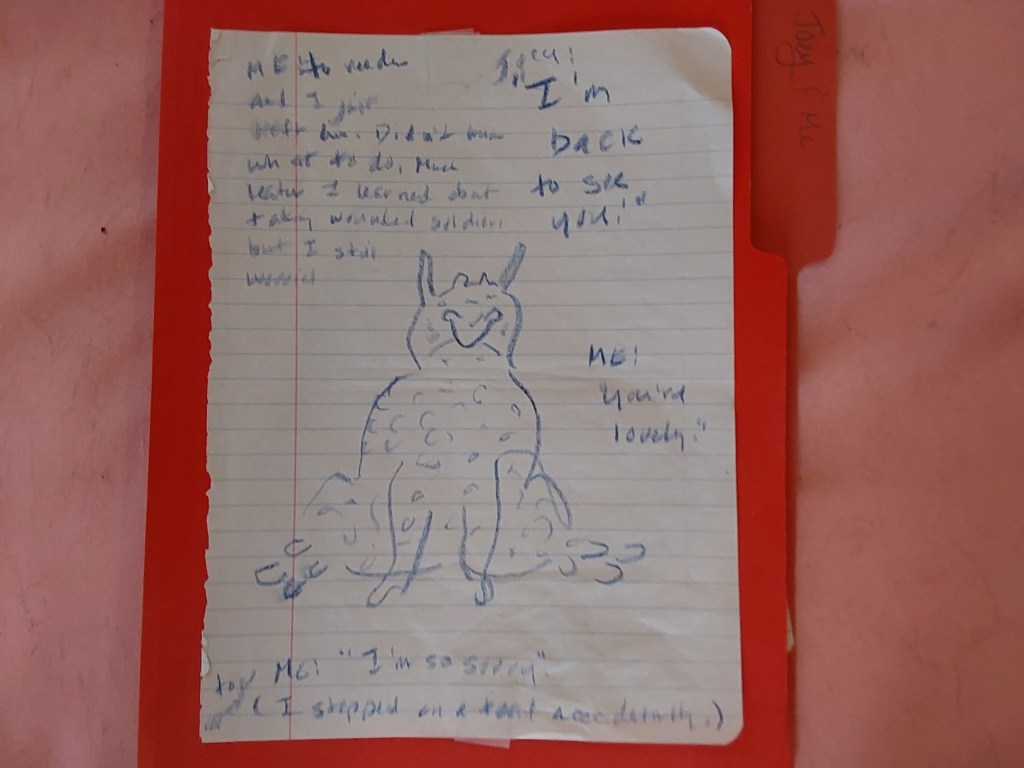 ME to reader
And I just
him. Didn't know
what to do, Much
later I learned about
taking wounded soldiers
but I still
Joey & Me
"I'm
back
to see
you!"
ME:
You're
lovely."
ME: "I'm so sorry".
(I stepped on a toad accidentally.)